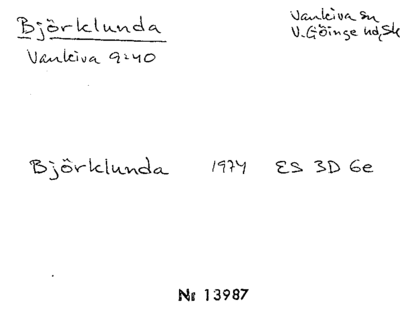 Björklunda
Vankiva sn
V. Göinge hd, Sk
Vankiva 9:40
Björklunda 1974 ES 3D 6e
Nr 13987